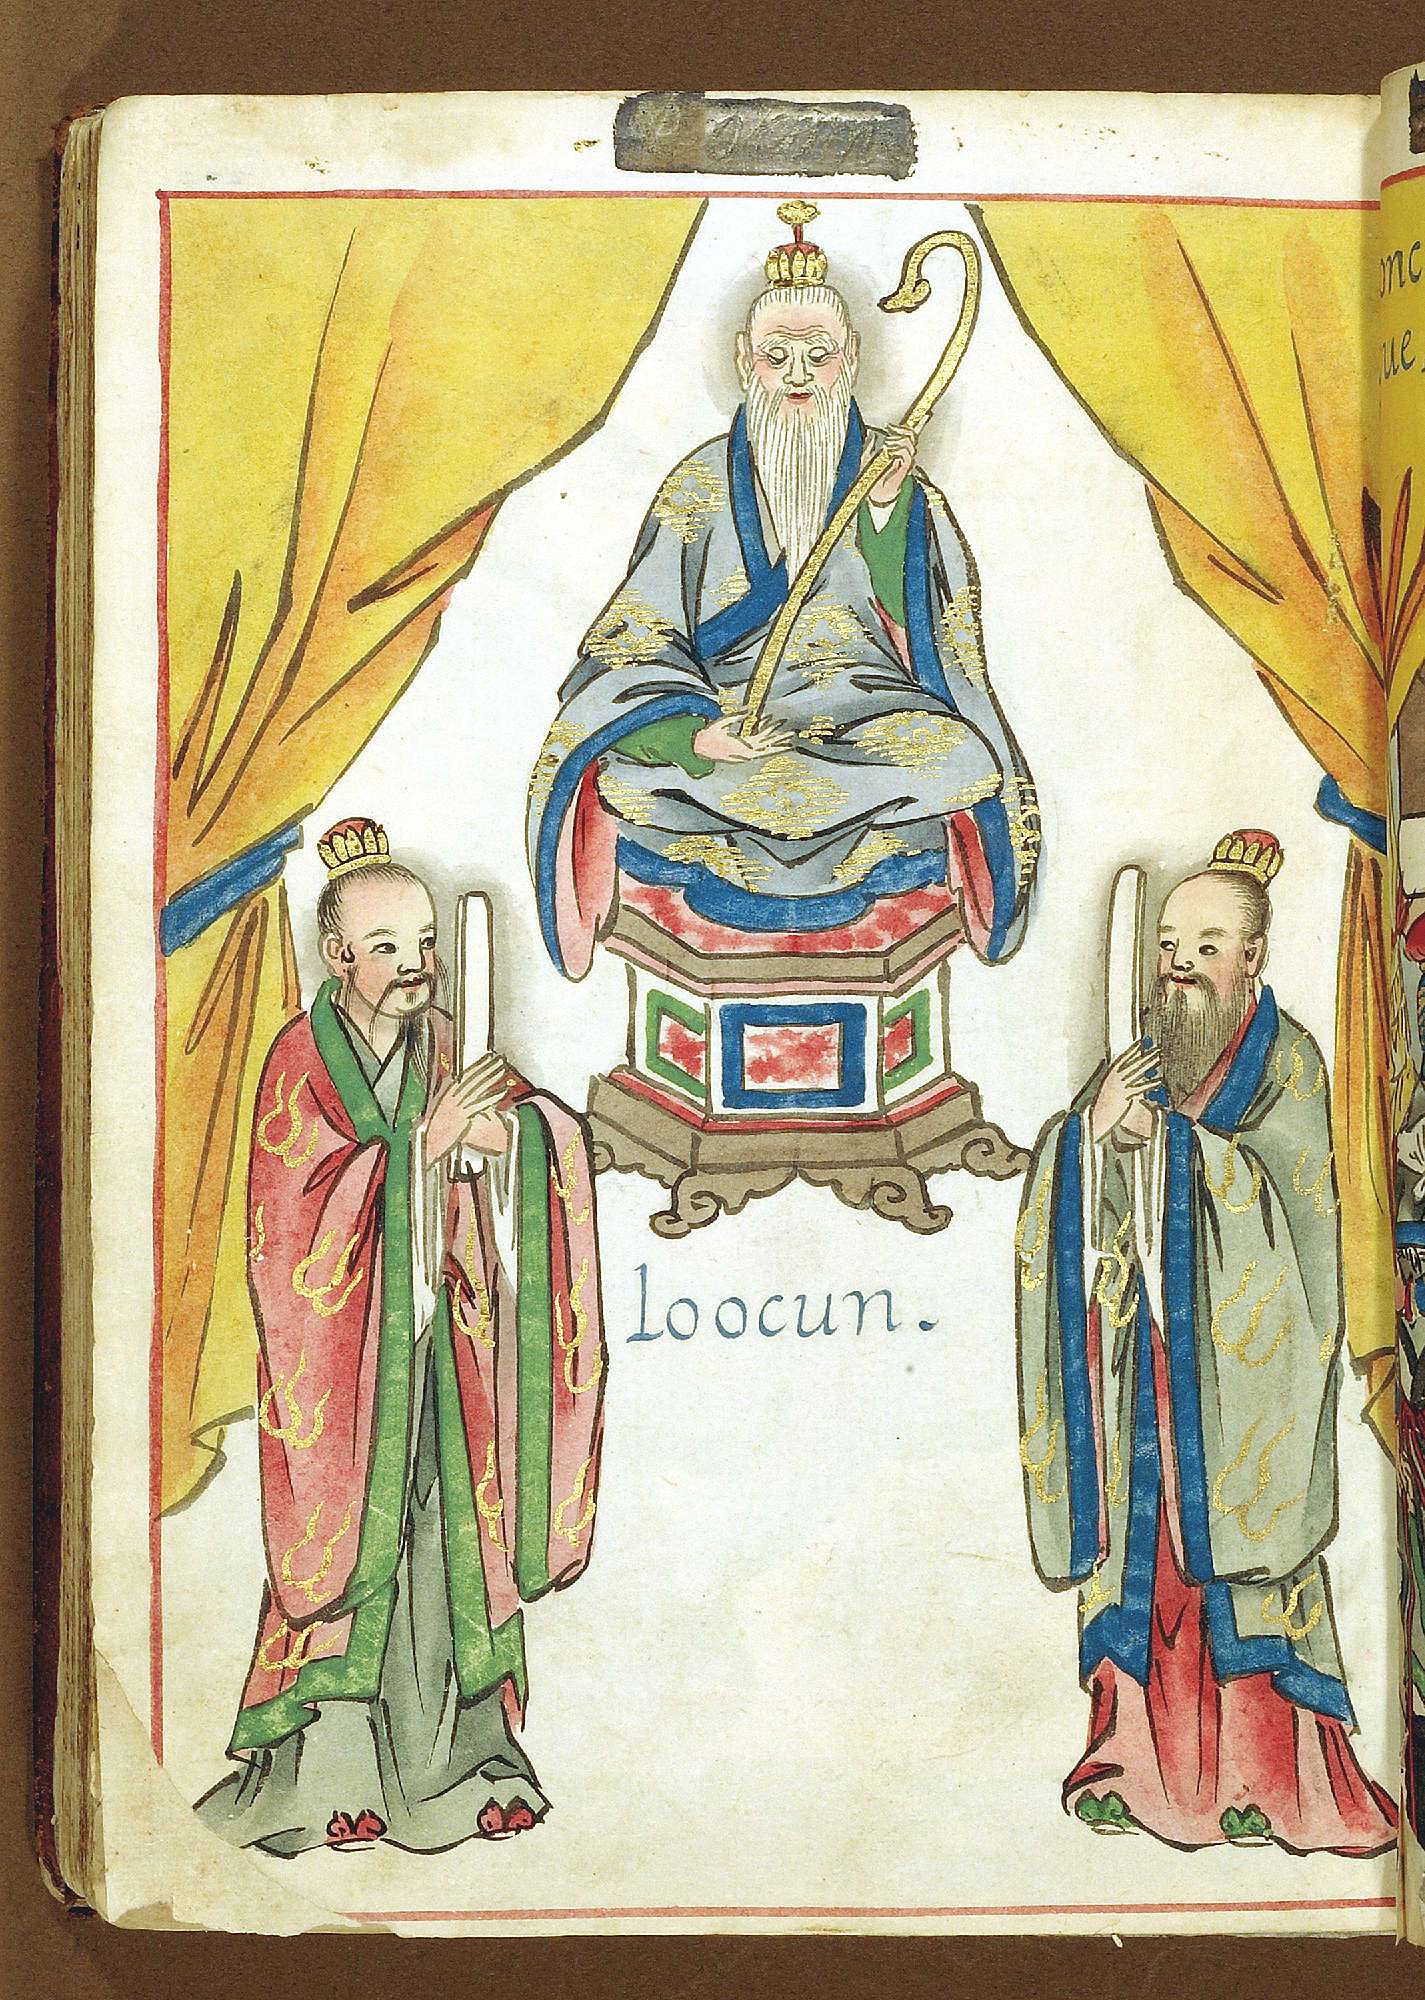 loocun.
onc
ue